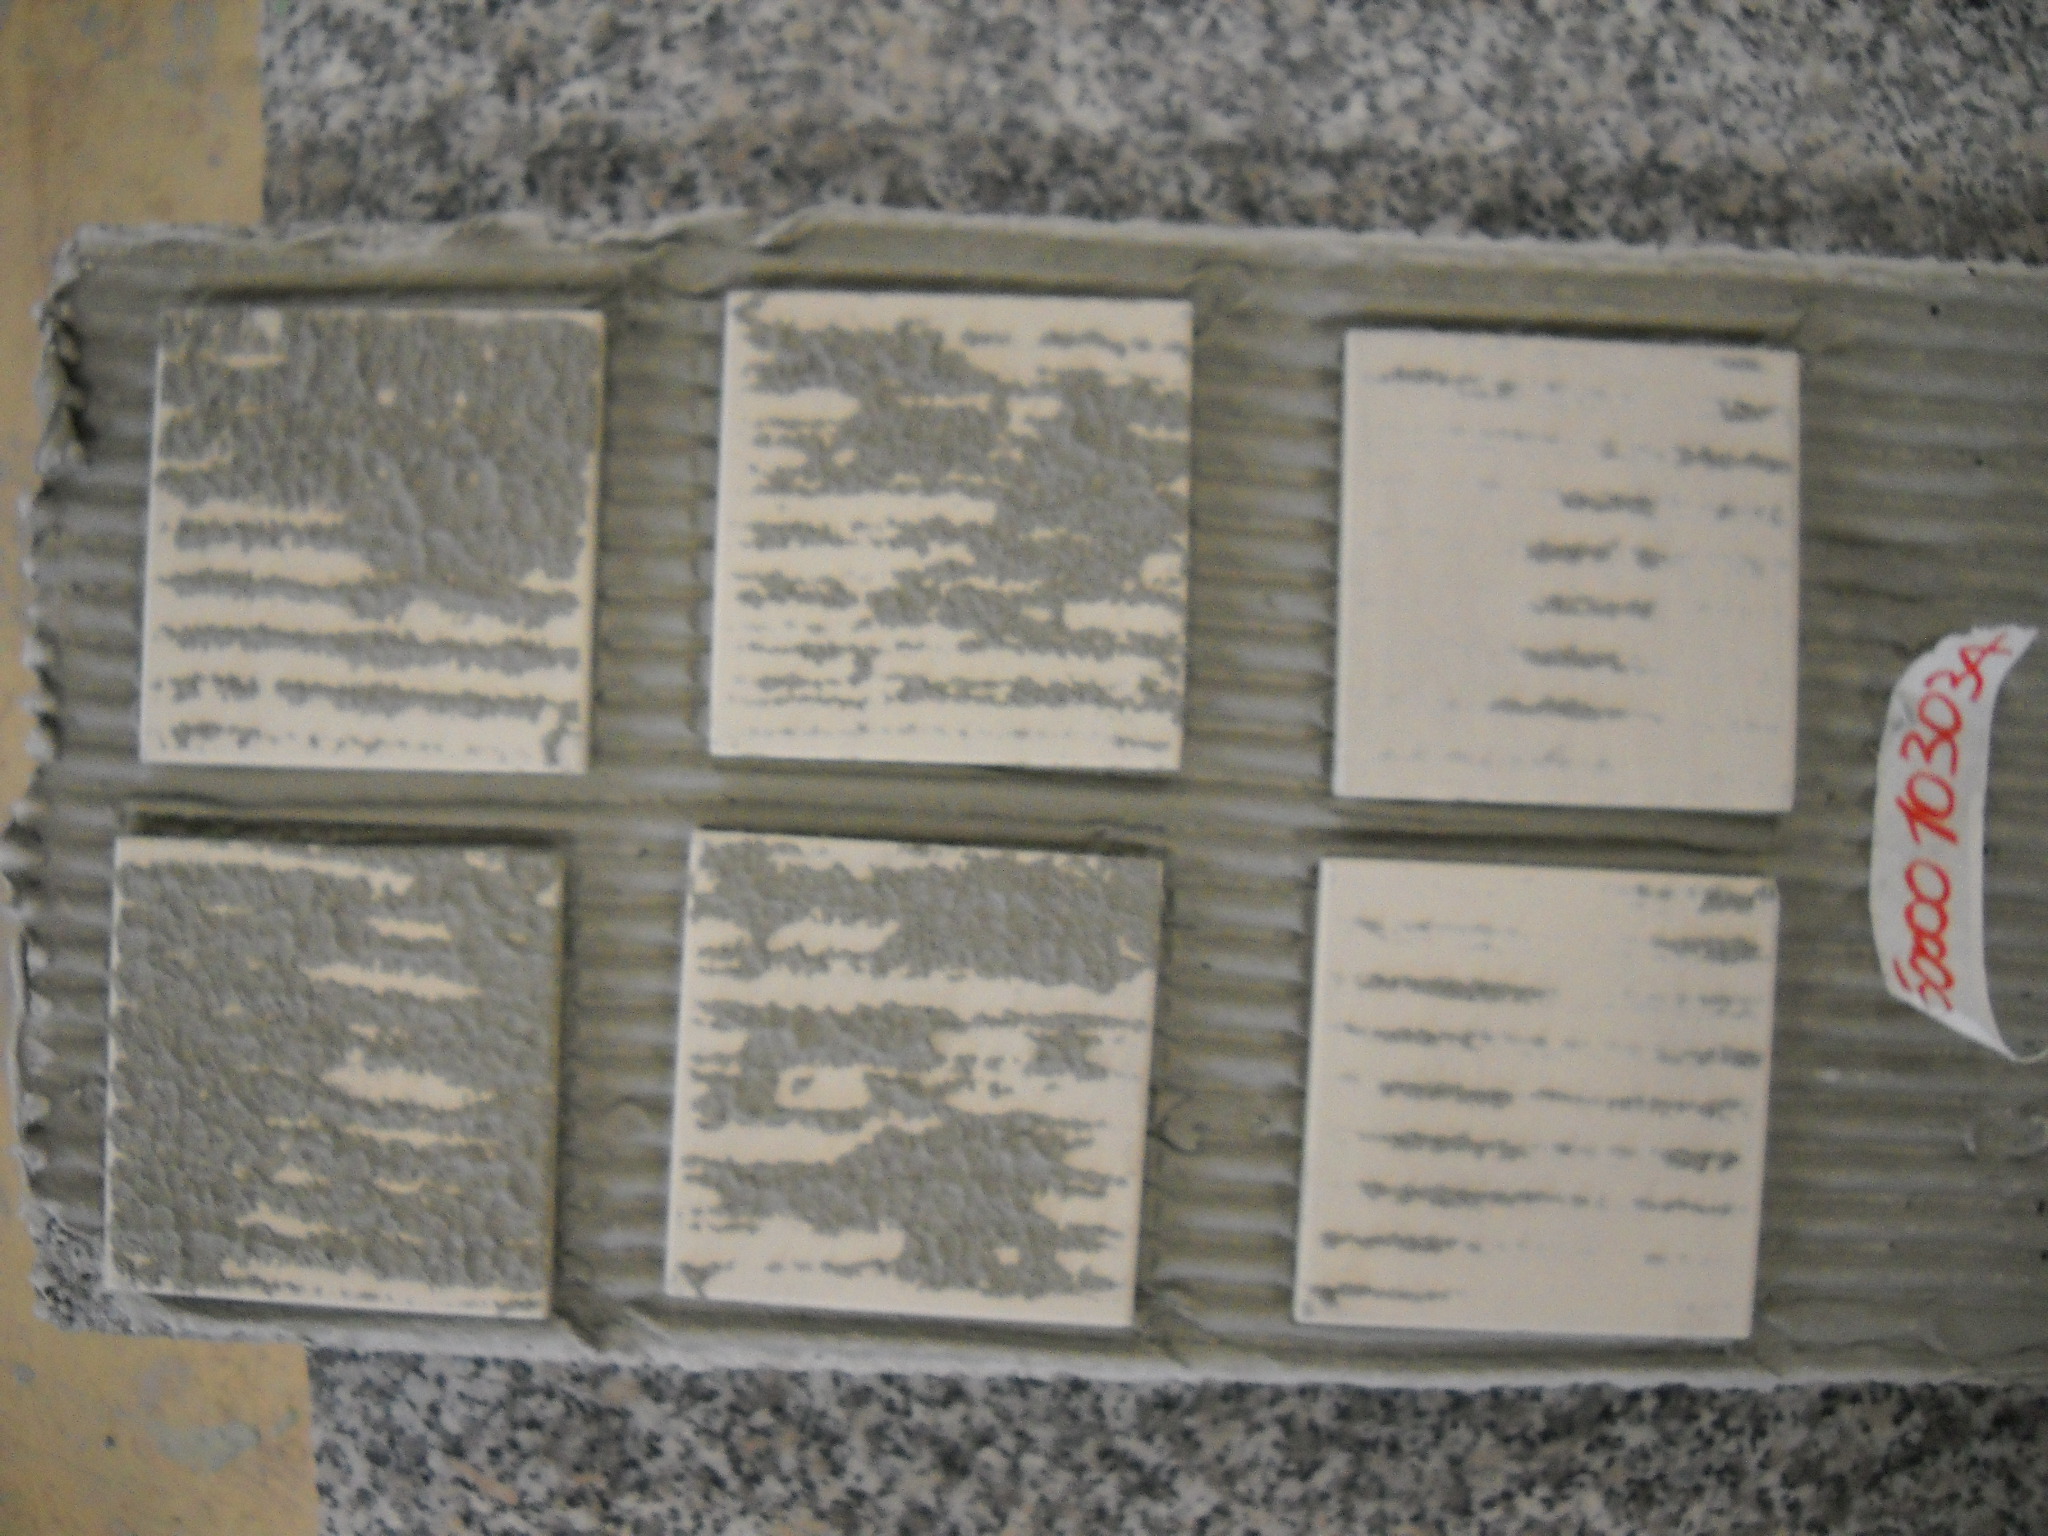 5000 10303A